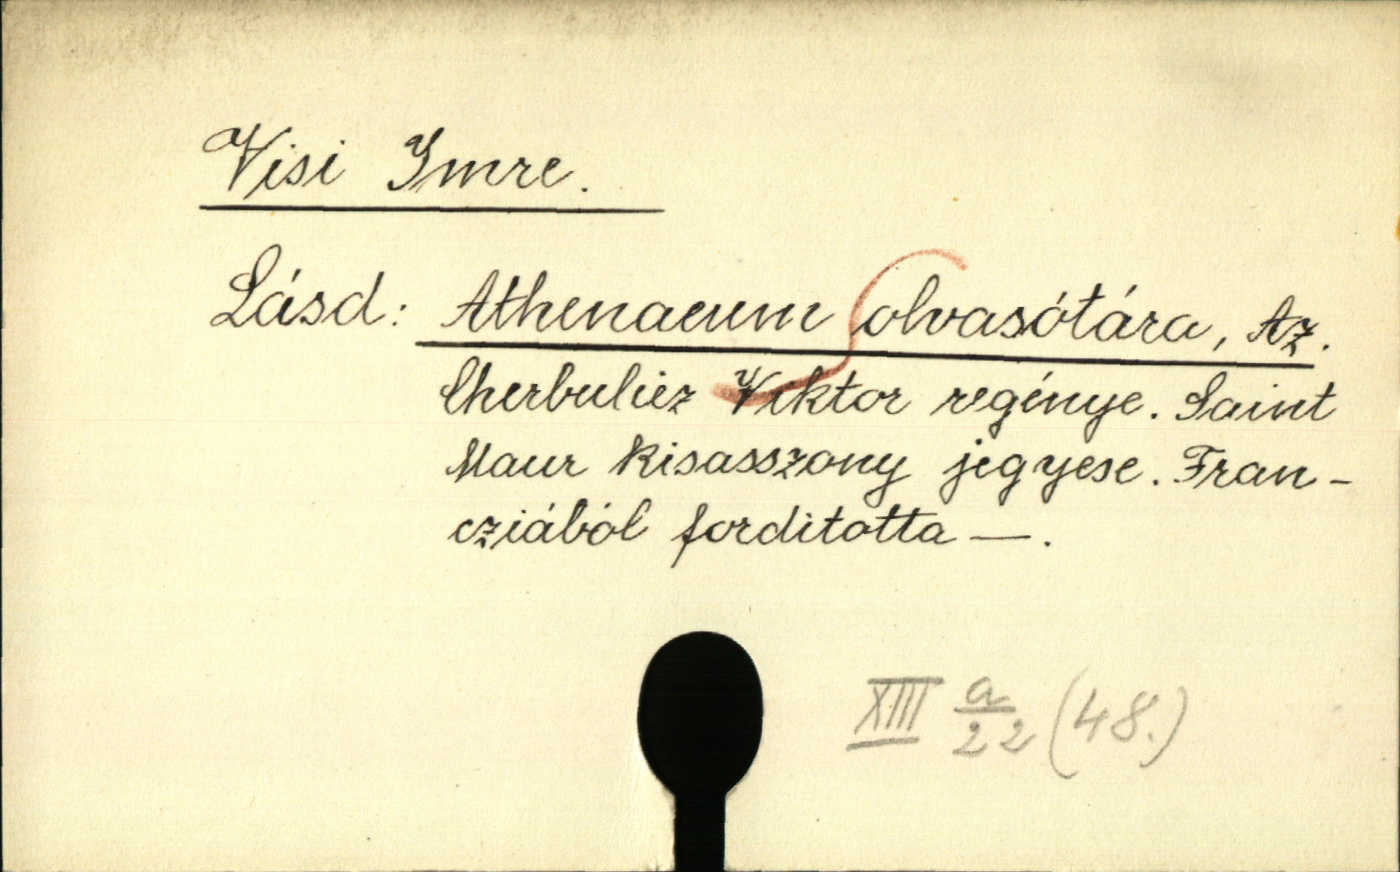 Visi Imre.
Lásd: Athenaeum olvasótára, Az.
Cherbuliez Viktor regénye. Saint
Maur kisasszony jegyese. Fran-
cziából forditotta —.
XIII a/22 (48.)